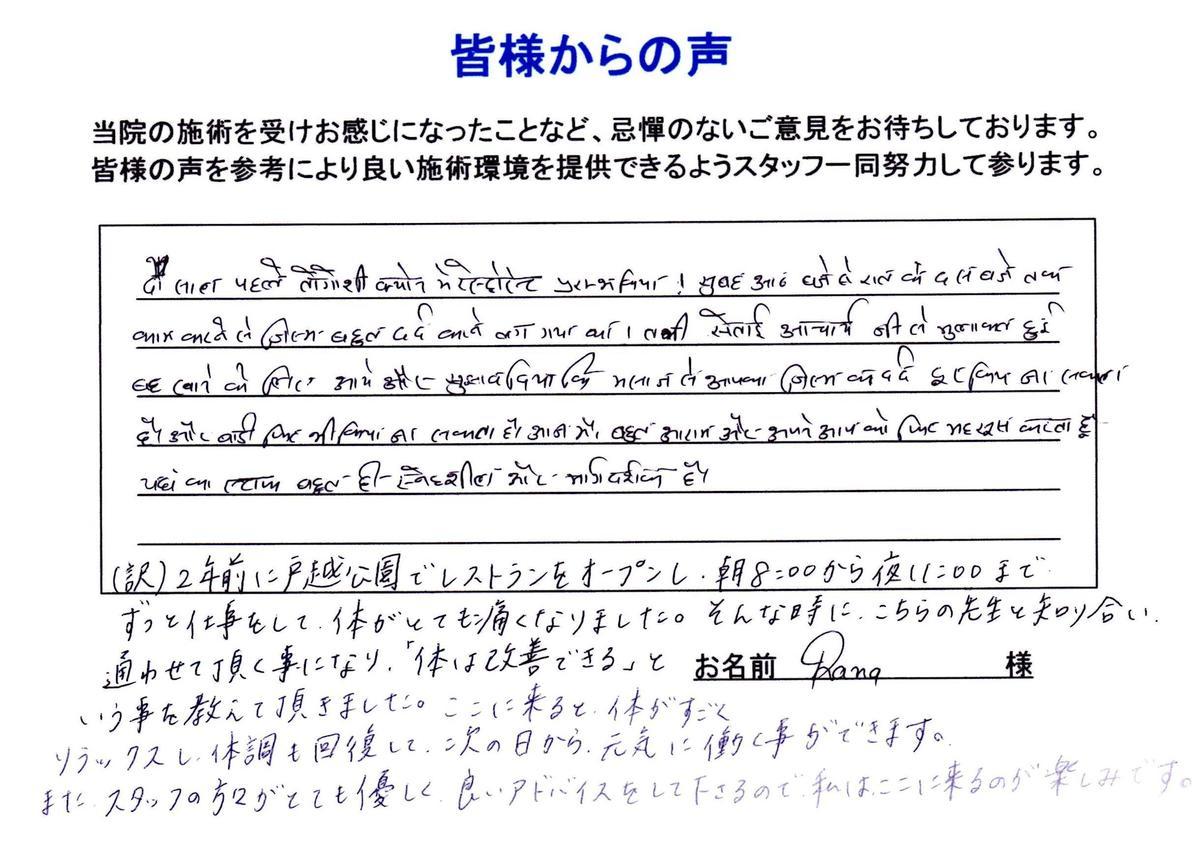 皆様からの声
当院の施術を受けお感じになったことなど、忌憚のないご意見をお待ちしております。
皆様の声を参考により良い施術環境を提供できるようスタッフ一同努力して参ります。
दो साल पहले तोगोशी में रेस्टोरेंट शुरू किया ! सुबह आठ बजे से रात के बजे तक
काम करने से जिस्म बहुत दर्द करने लग गया था । तभी आचार्य जी से मुलाकात हुई
आगे और सुझाव दिया कि मसाज से आपका जिस्म का दर्द दूर किया जा सकता
है और फिट भी किया जा सकता है। आज मैं बहुत आराम और अपने आप को फिट महसूस करता हूँ
यहां का स्टाफ बहुत ही और मार्गदर्शक है।
(訳) 2年前に戸越公園でレストランをオープンし、朝8:00から夜11:00まで
ずっと仕事をして、体がとても痛くなりました。そんな時に、こちらの先生と知り合い、
通わせて頂く事になり、「体は改善できる」と
お名前 Rana 様
いう事を教えて頂きました。ここに来ると、体がすごく
リラックスし、体調も回復して、次の日から、元気に働く事ができます。
また、スタッフの方々がとても優しく、良いアドバイスをして下さるので、私は、ここに来るのが楽しみです。